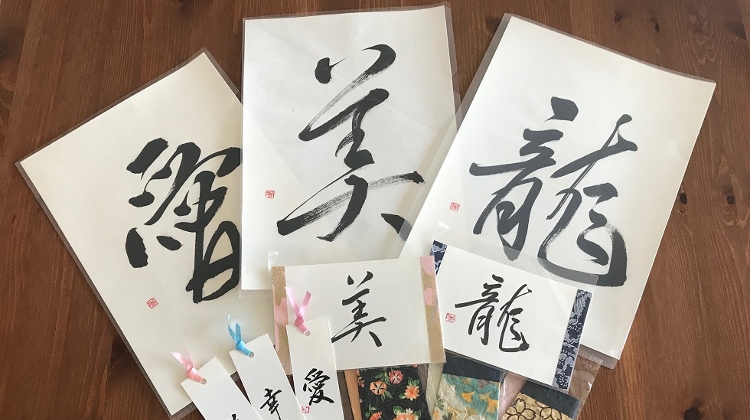 美
龍
美
龍
幸
愛